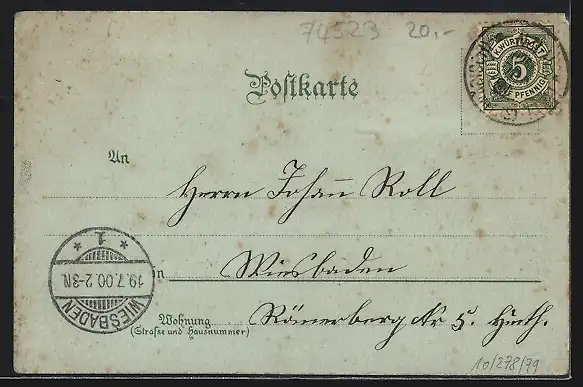 74523 20,-
K. WÜRTT. POST
5
PFENNIG
Postkarte
An
Herrn Johann Roll
in Wiesbaden
Wohnung Römerberg Nr 5. Hinth.
(Straße und Hausnummer)
WIESBADEN
19.7.00.2-3N.
* 1 *
10/278/79